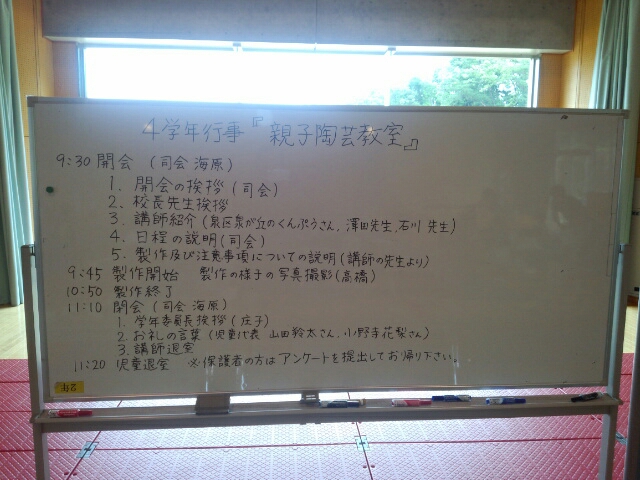 4学年行事『親子陶芸教室』
9:30 開会 (司会 海原)
1. 開会の挨拶 (司会)
2. 校長先生挨拶
3. 講師紹介 (泉区泉が丘のくんぷうさん、澤田先生、石川先生)
4. 日程の説明 (司会)
5. 製作及び注意事項についての説明 (講師の先生より)
9:45 製作開始 製作の様子の写真撮影 (高橋)
10:50 製作終了
11:10 閉会 (司会 海原)
1. 学年委員長挨拶 (庄子)
2. お礼の言葉 (児童代表 山田 太さん、小野寺花梨さん)
3. 講師退室
11:20 児童退室 ※保護者の方はアンケートを提出してお帰り下さい。